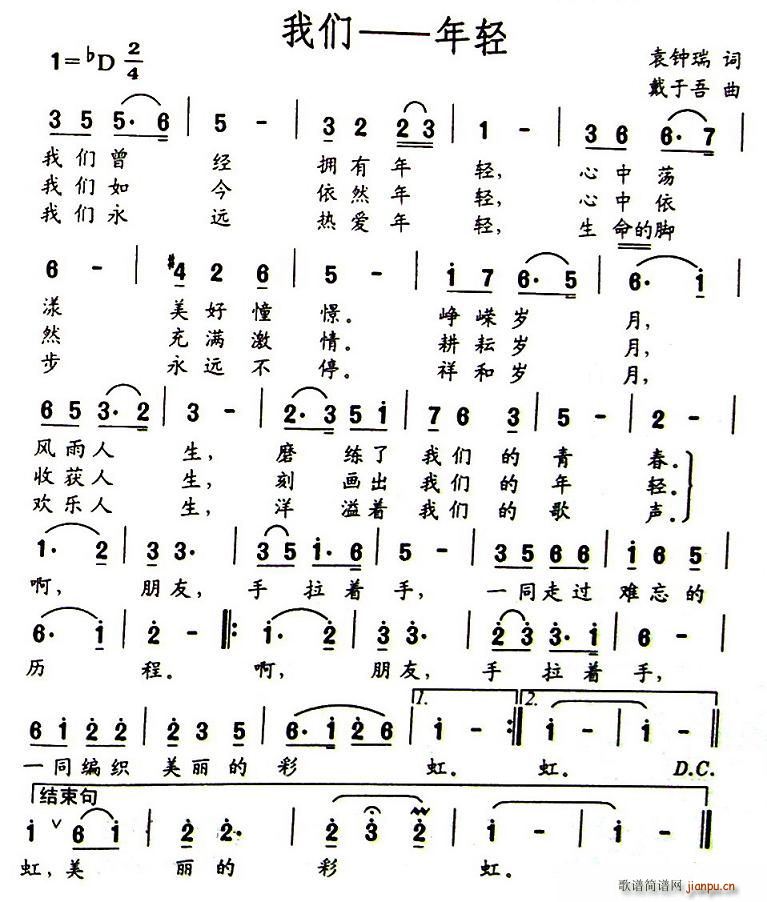 我们——年轻
1=♭D 2/4
袁钟瑞 词
戴于吾 曲
3 5 5· 6 | 5 - | 3 2 2 3 | 1 - | 3 6 6· 7 |
我们曾 经 拥有年 轻, 心中荡
我们如 今 依然年 轻, 心中依
我们永 远 热爱年 轻, 生命的脚
6 - | #4 2 6 | 5 - | i 7 6· 5 | 6· i |
漾 美好憧 憬。 峥嵘岁 月,
然 充满激 情。 耕耘岁 月,
步 永远不 停。 祥和岁 月,
6 5 3· 2 | 3 - | 2· 3 5 i | 7 6 3 | 5 - | 2 -
风雨人 生, 磨 练了 我们的 青 春。
收获人 生, 刻 画出 我们的 年 轻。
欢乐人 生, 洋 溢着 我们的 歌 声。
1· 2 | 3 3· | 3 5 i· 6 | 5 - | 3 5 6 6 | i 6 5 |
啊, 朋友, 手 拉着 手, 一同走过 难忘的
6· i | 2 - |: i· 2 | 3 3· | 2 3 3· i | 6 - |
历 程。 啊, 朋友, 手 拉着 手,
6 i 2 2 | 2 3 5 | 6· i 2 6 | 1. i - :| 2. i - | i - |
一同编织 美丽的 彩 虹。 虹。 D.C.
结束句
i ∨ 6 i | 2 2· | 2 3 2 | i - | i - ‖
虹, 美 丽的 彩 虹。
歌谱简谱网 jianpu.cn